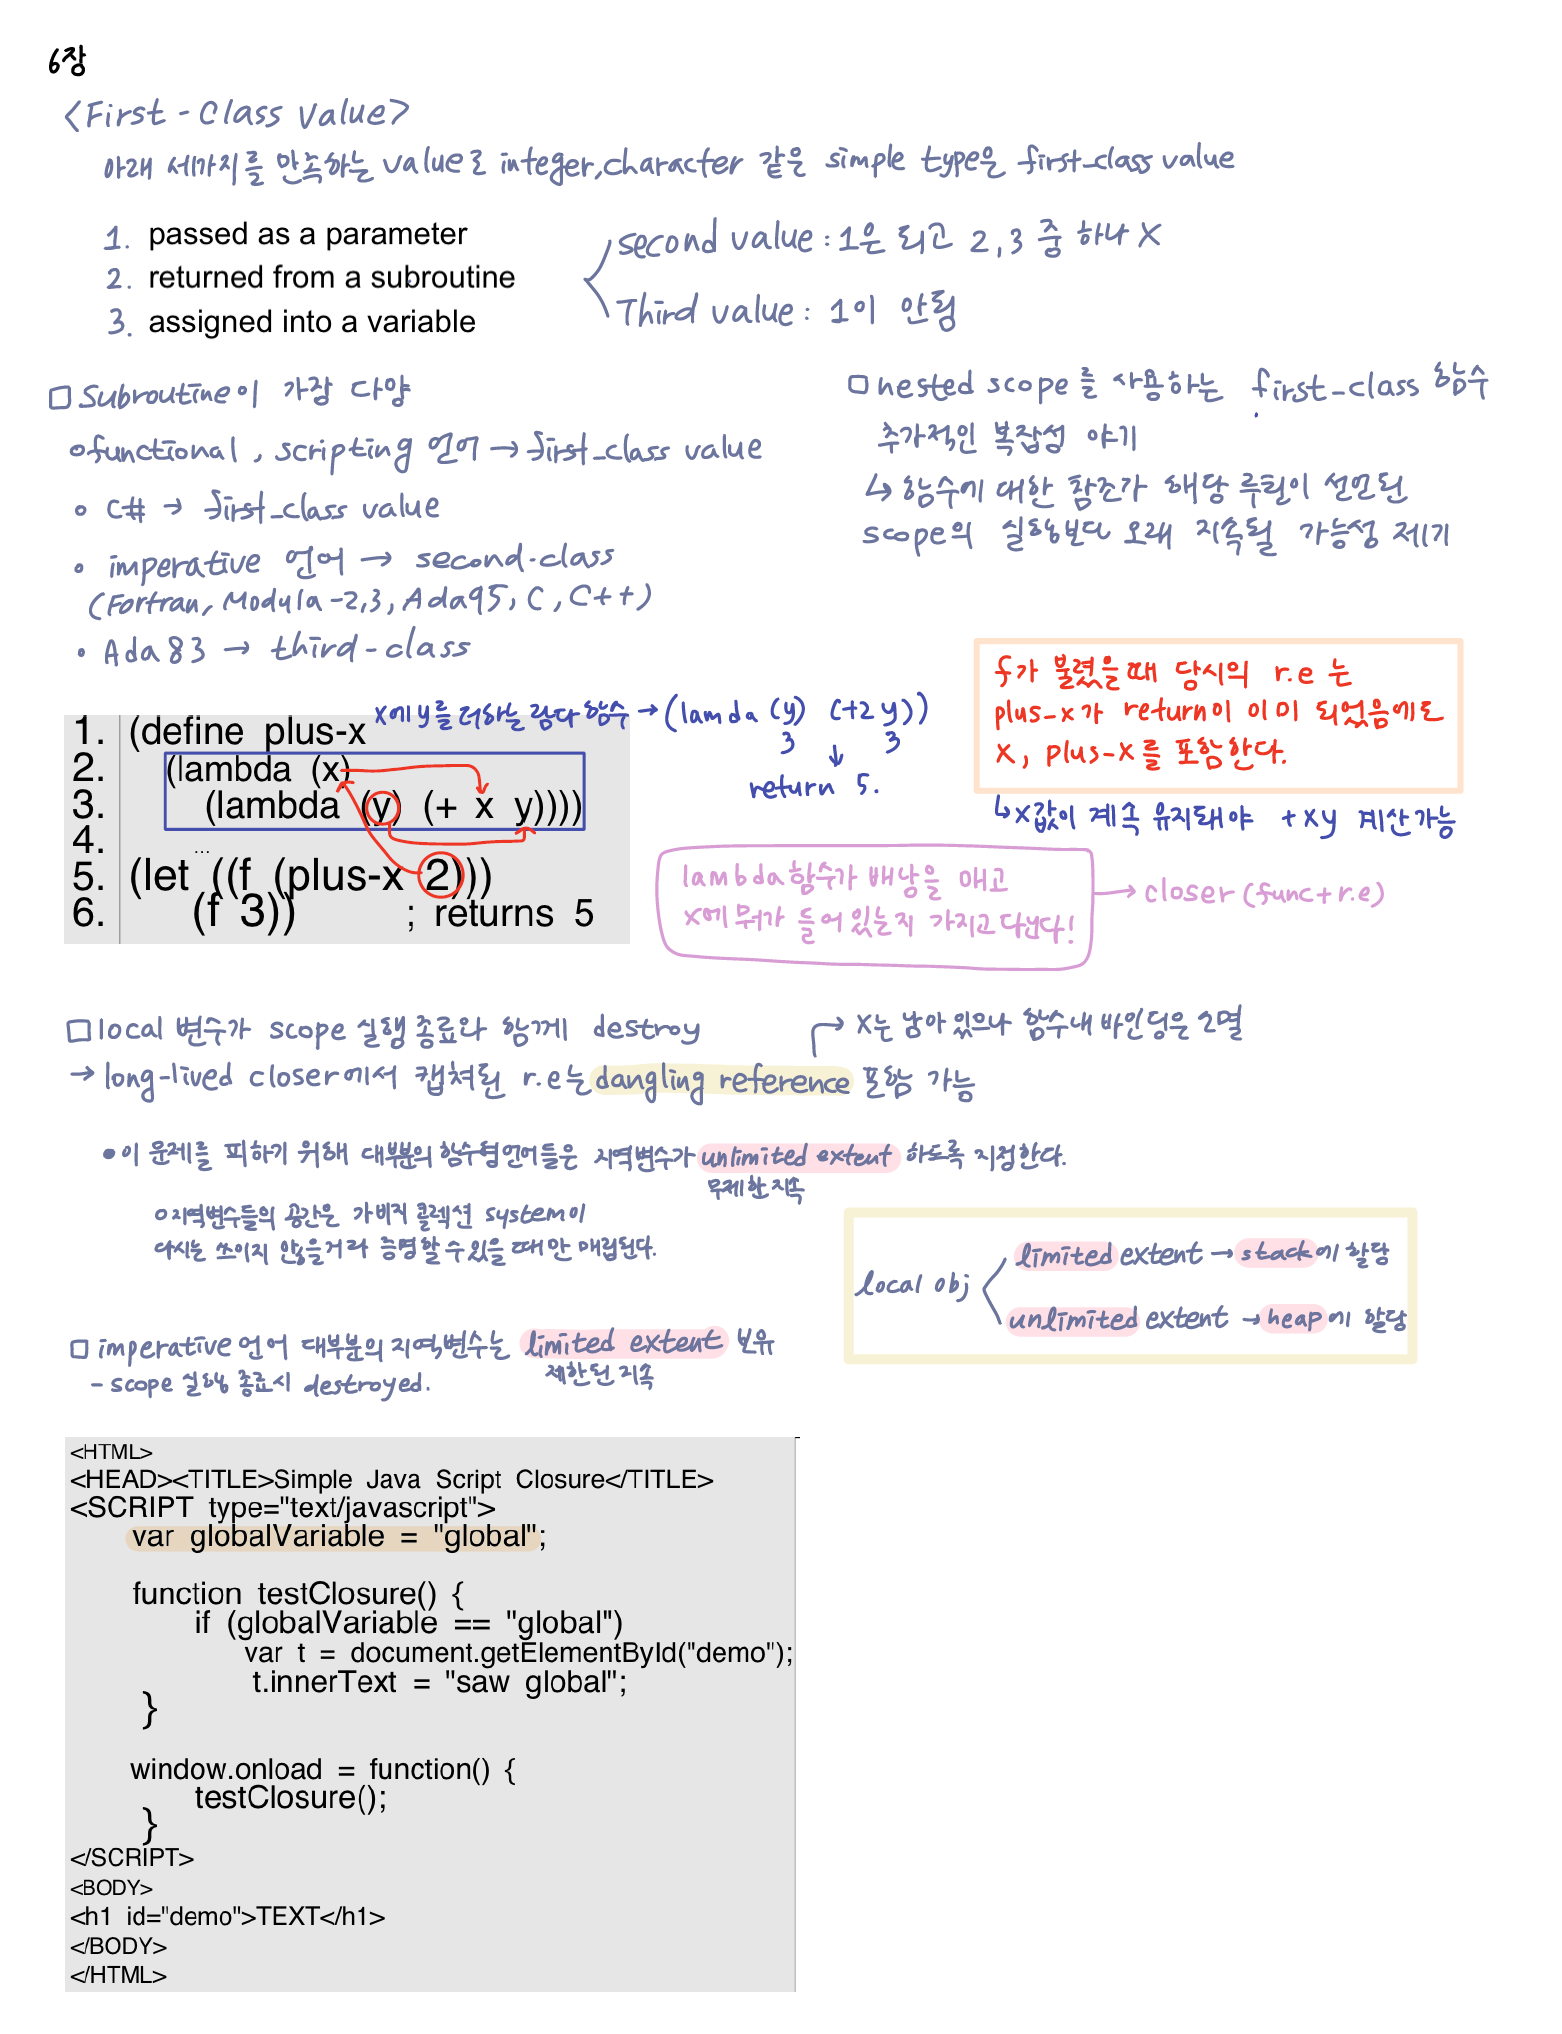 6장
<First-Class Value>
아래 세가지를 만족하는 value로 integer,character 같은 simple type은 first_class value
1. passed as a parameter
2. returned from a subroutine
3. assigned into a variable
second value : 1은 되고 2,3 중 하나 X
Third value : 1이 안됨
□ Subroutine이 가장 다양
○functional , scripting 언어 → first_class value
○ C# → first_class value
• imperative 언어 → second-class
(Fortran, Modula-2,3, Ada95, C, C++)
• Ada 83 → third-class
□ nested scope를 사용하는 first_class 함수
추가적인 복잡성 야기
↳ 함수에 대한 참조가 해당 루틴이 선언된
scope의 실행보다 오래 지속될 가능성 제기
f가 불렸을때 당시의 r.e 는
plus-x가 return이 이미 되었음에도
x, plus-x를 포함한다.
↳x값이 계속 유지돼야 +xy 계산가능
x에 y를 더하는 람다 함수 → (lamda (y) (+2 y))
3 3
↓
return 5.
1. (define plus-x
2. (lambda (x)
3. (lambda (y) (+ x y))))
4. ...
5. (let ((f (plus-x 2)))
6. (f 3)) ; returns 5
lambda함수가 배낭을 매고
x에 뭐가 들어있는지 가지고다닌다!
→ closer (func+r.e)
□ local 변수가 scope 실행 종료와 함께 destroy
→ x는 남아 있으나 함수내 바인딩은 소멸
→ long-lived closer에서 캡쳐된 r.e는 dangling reference 포함 가능
•이 문제를 피하기 위해 대부분의 함수형언어들은 지역변수가 unlimited extent 하도록 지정한다.
무제한 지속
○지역변수들의 공간은 가비지 콜렉션 system이
다시는 쓰이지 않을거라 증명할 수 있을 때만 매립된다.
local obj
limited extent → stack에 할당
unlimited extent → heap에 할당
□ imperative 언어 대부분의 지역변수는 limited extent 보유
제한된 지속
- scope 실행 종료시 destroyed.
<HTML>
<HEAD><TITLE>Simple Java Script Closure</TITLE>
<SCRIPT type="text/javascript">
var globalVariable = "global";
function testClosure() {
if (globalVariable == "global")
var t = document.getElementById("demo");
t.innerText = "saw global";
}
window.onload = function() {
testClosure();
}
</SCRIPT>
<BODY>
<h1 id="demo">TEXT</h1>
</BODY>
</HTML>